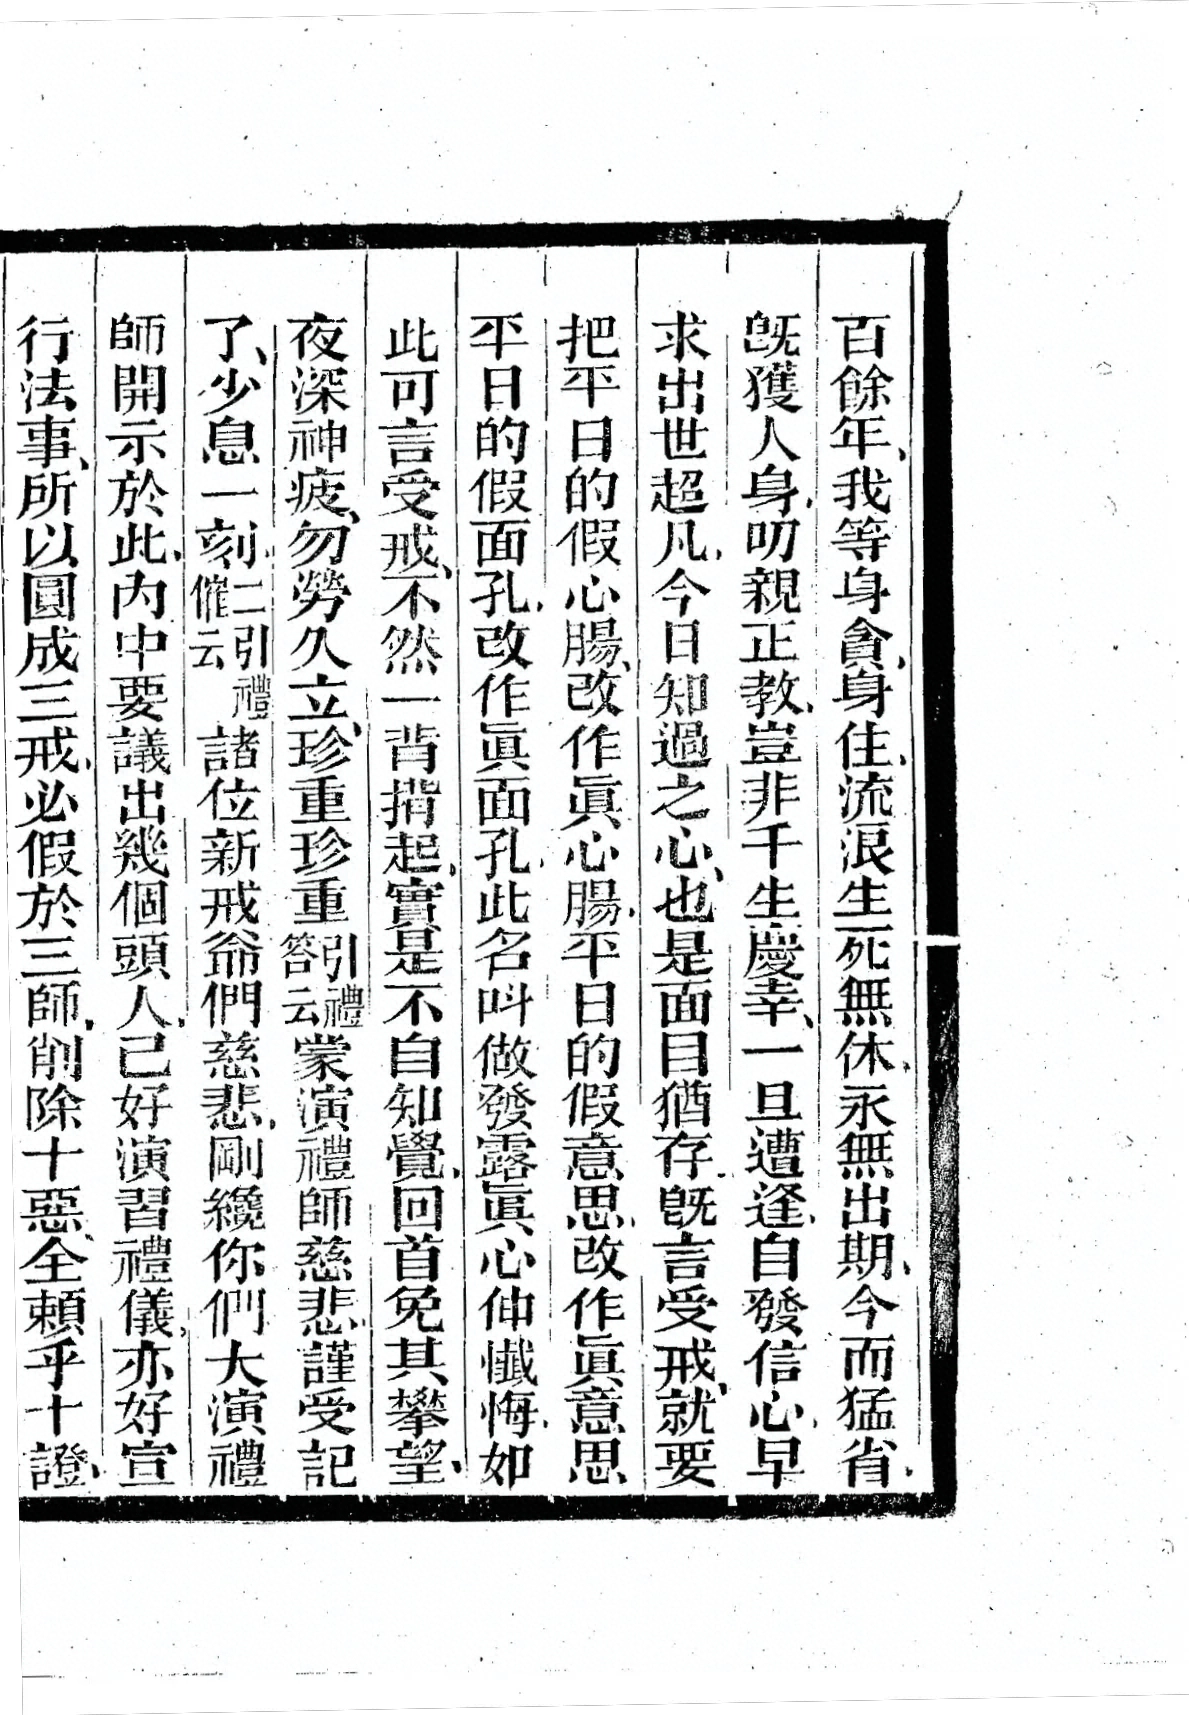 百餘年、我等身貪、身住、流浪生死無休、永無出期、今而猛省、
旣獲人身、叨親正教、豈非千生慶幸、一旦遭逢、自發信心、早
求出世超凡、今日知過之心、也是面目猶存、旣言受戒、就要
把平日的假心腸、改作眞心腸、平日的假意思、改作眞意思
平日的假面孔、改作眞面孔、此名呌做發露眞心伸懺悔、如
此可言受戒、不然一背揹起、實是不自知覺、回首免其攀望、
夜深神疲、勿勞久立、珍重珍重引禮答云蒙演禮師慈悲、謹受記
了、少息一刻、二引禮催云諸位新戒爺們慈悲、剛纔你們大演禮
師開示於此、內中要議出幾個頭人、己好演習禮儀、亦好宣
行法事、所以圓成三戒、必假於三師、削除十惡、全賴乎十證、